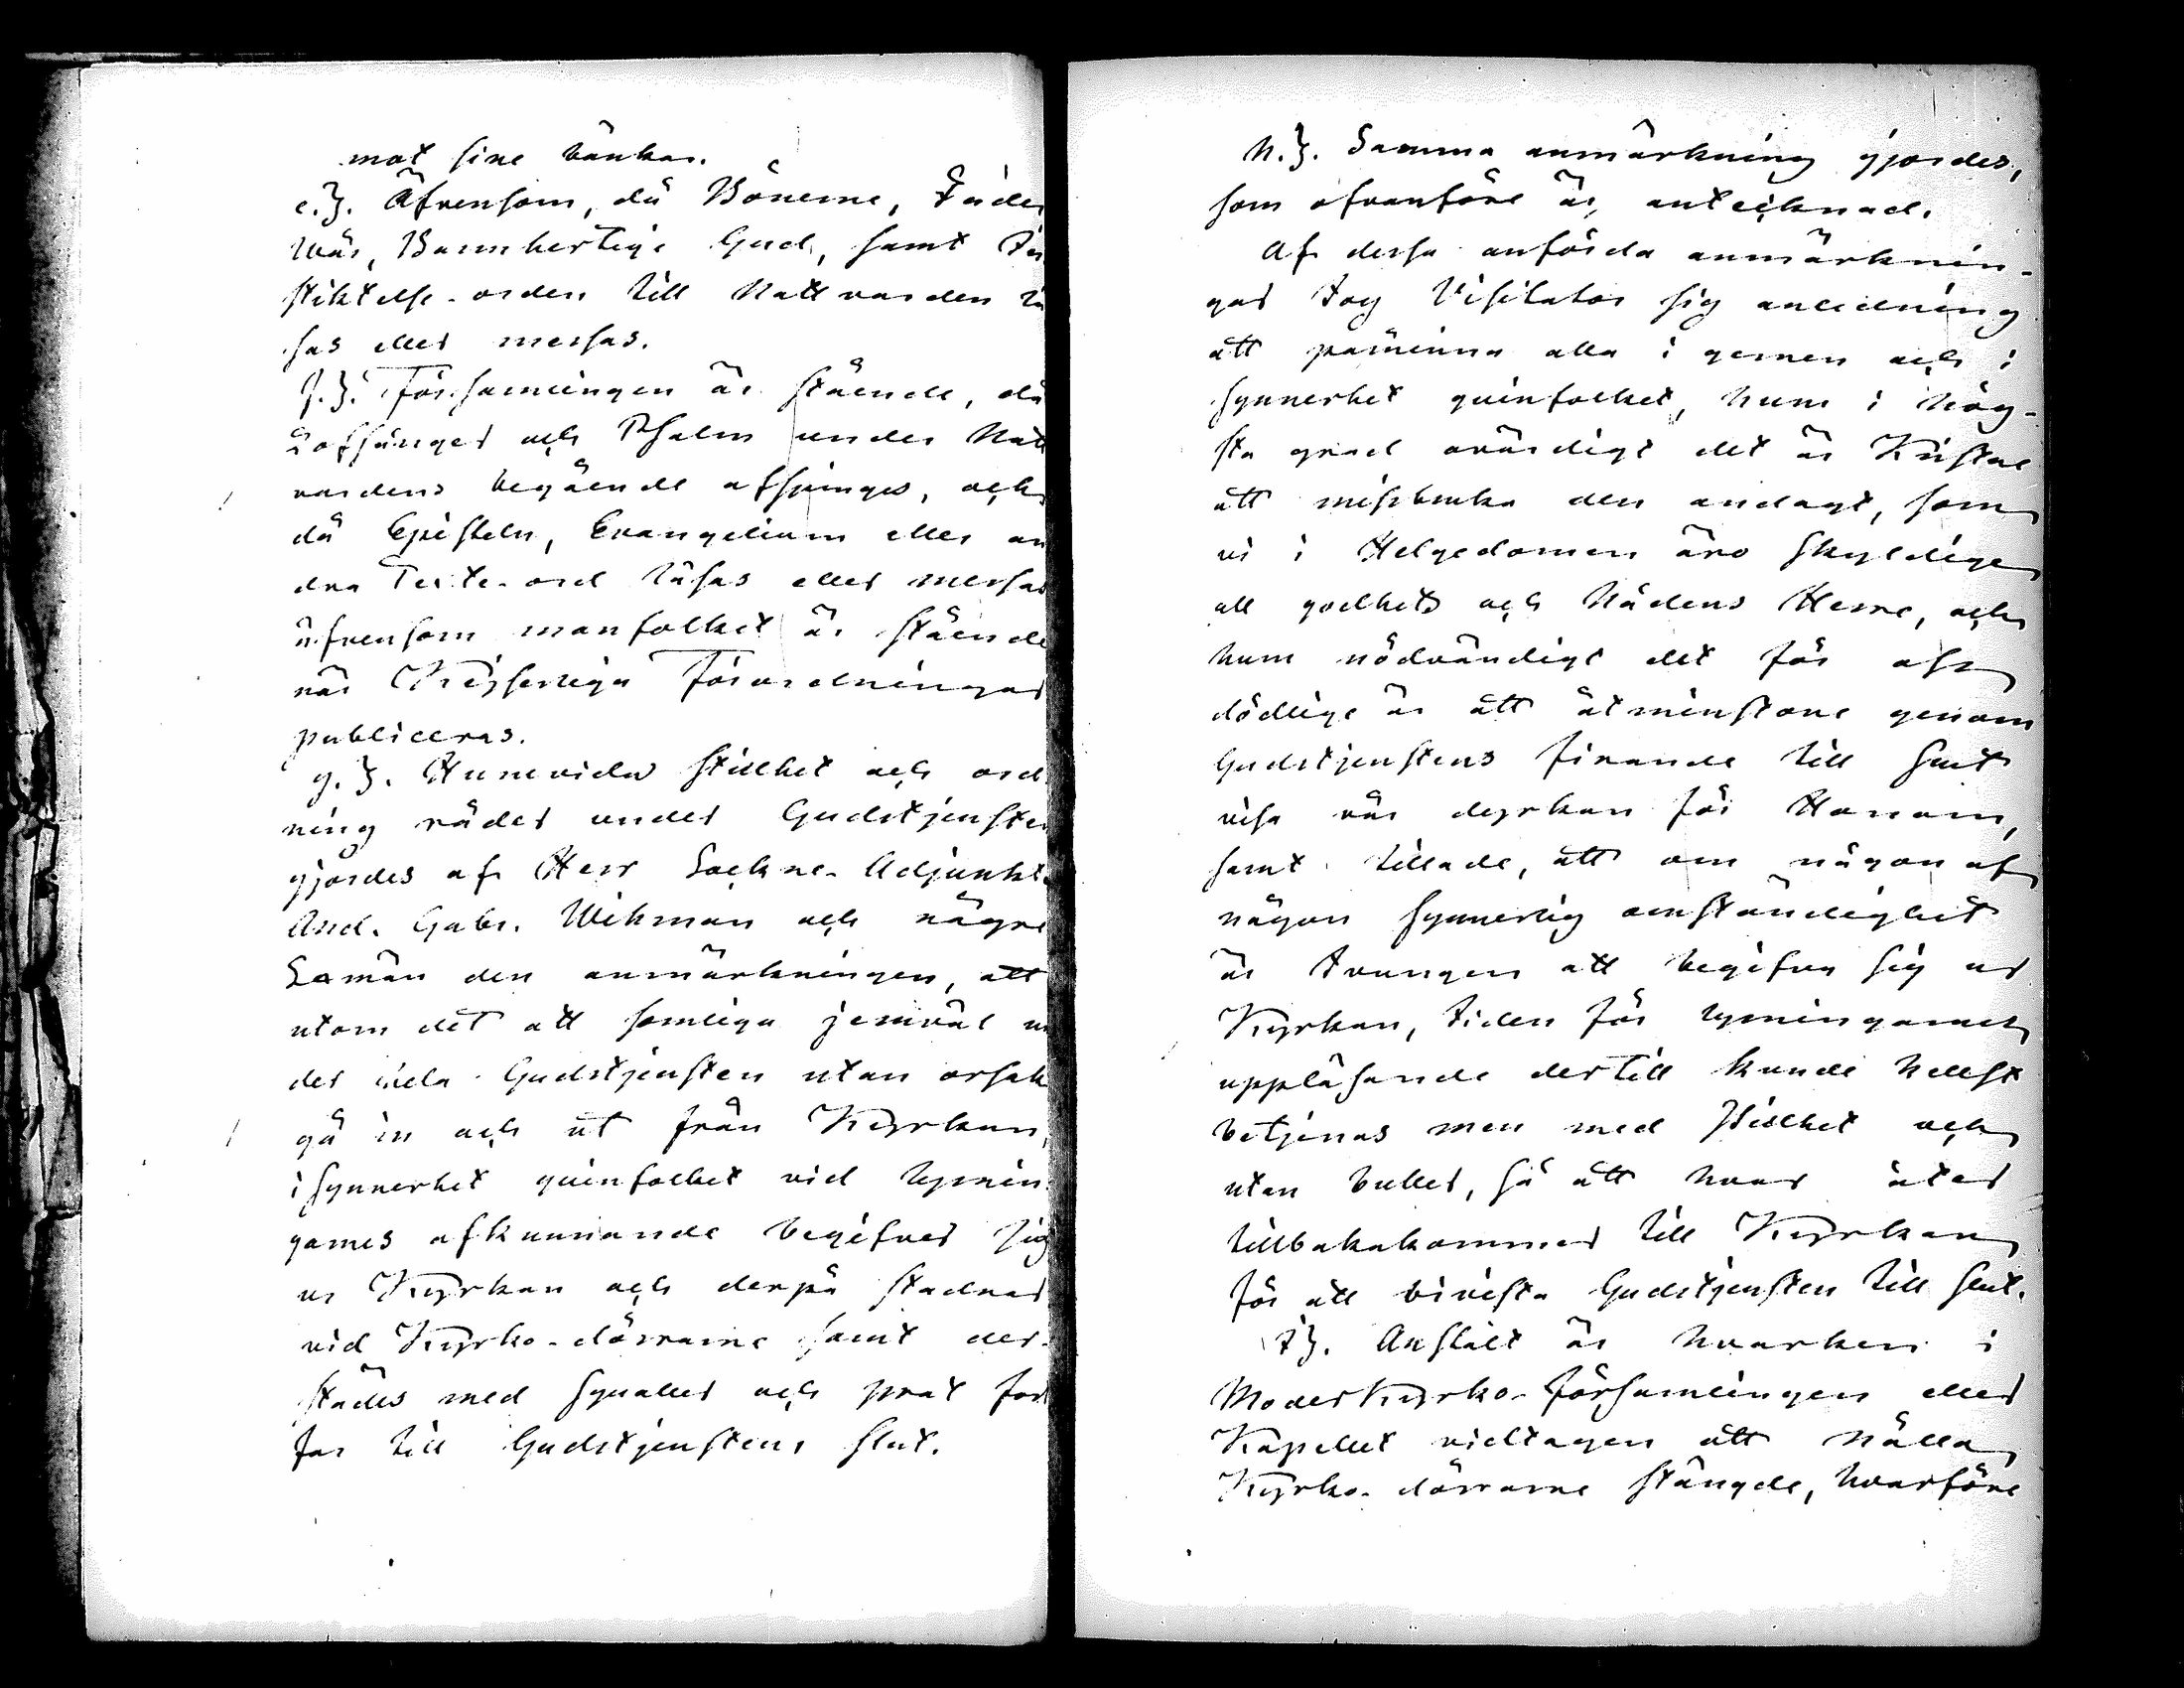 mot sine bänkar.
e.). Äfvensom, då Bönerne, Fader
Wår, Barmhertige Gud, samt In
stiktelse-orden till Nattvarden lä
sas eller messas.
f.). Församlingen är stående, då
Lofsånger och Psalm under Natt
vardens begående afsjunges, och
då Episteln, Evangelium eller an
dra Texte-ord läsas eller messas
äfvensom manfolket är stående
när Kejserliga Förordningar
publiceras.
g.). Huruvida stillhet och ord
ning råder under Gudstjensten
gjordes af Herr Sockne-Adjunkt.
And. Gabr. Wikman och någre
Lemän den anmärkningen, att
utom det att somliga jemväl un
der hela Gudstjensten utan orsak
gå in och ut från Kyrkan,
i synnerhet qvinfolket vid lysnin
garnes afkunnande begifver sig
ur Kyrkan och derpå stadnar
vid Kyrko-dörrarne samt der-
städes med sqvaller och prat for
far till Gudstjenstens slut.
h.). Samma anmärkning gjordes,
som ofvanföre är antecknad.
Af dessa anförda anmärknin-
gar tog Visitator sig anledning
att påminna alla i gemen och i
synnerhet qvinfolket, huru i hög-
sta grad ovärdigt det är Kristne
att missbruka den andagt, som
vi i Helgedomen äro skyldige
all godhets och Nådens Herre, och
huru nödvändigt det för oss
dödlige är att åtminstone genom
Gudstjenstens firande till slut
visa vår dyrkan för Honom,
samt tillade, att om någon af
någon synnerlig omständighet
är tvungen att begifva sig ur
Kyrkan, tiden för lysningarnes
uppläsande dertill kunde helst
betjenas men med stillhet och
utan buller, så att hvar åter
tillbakakommer till Kyrkan
för att bivista Gudstjensten till slut.
i). Anstalt är hvarken i
Moderkyrko-Församlingen eller
Kapellet vidtagen att hålla
Kyrko-dörrarne stängde, hvarföre